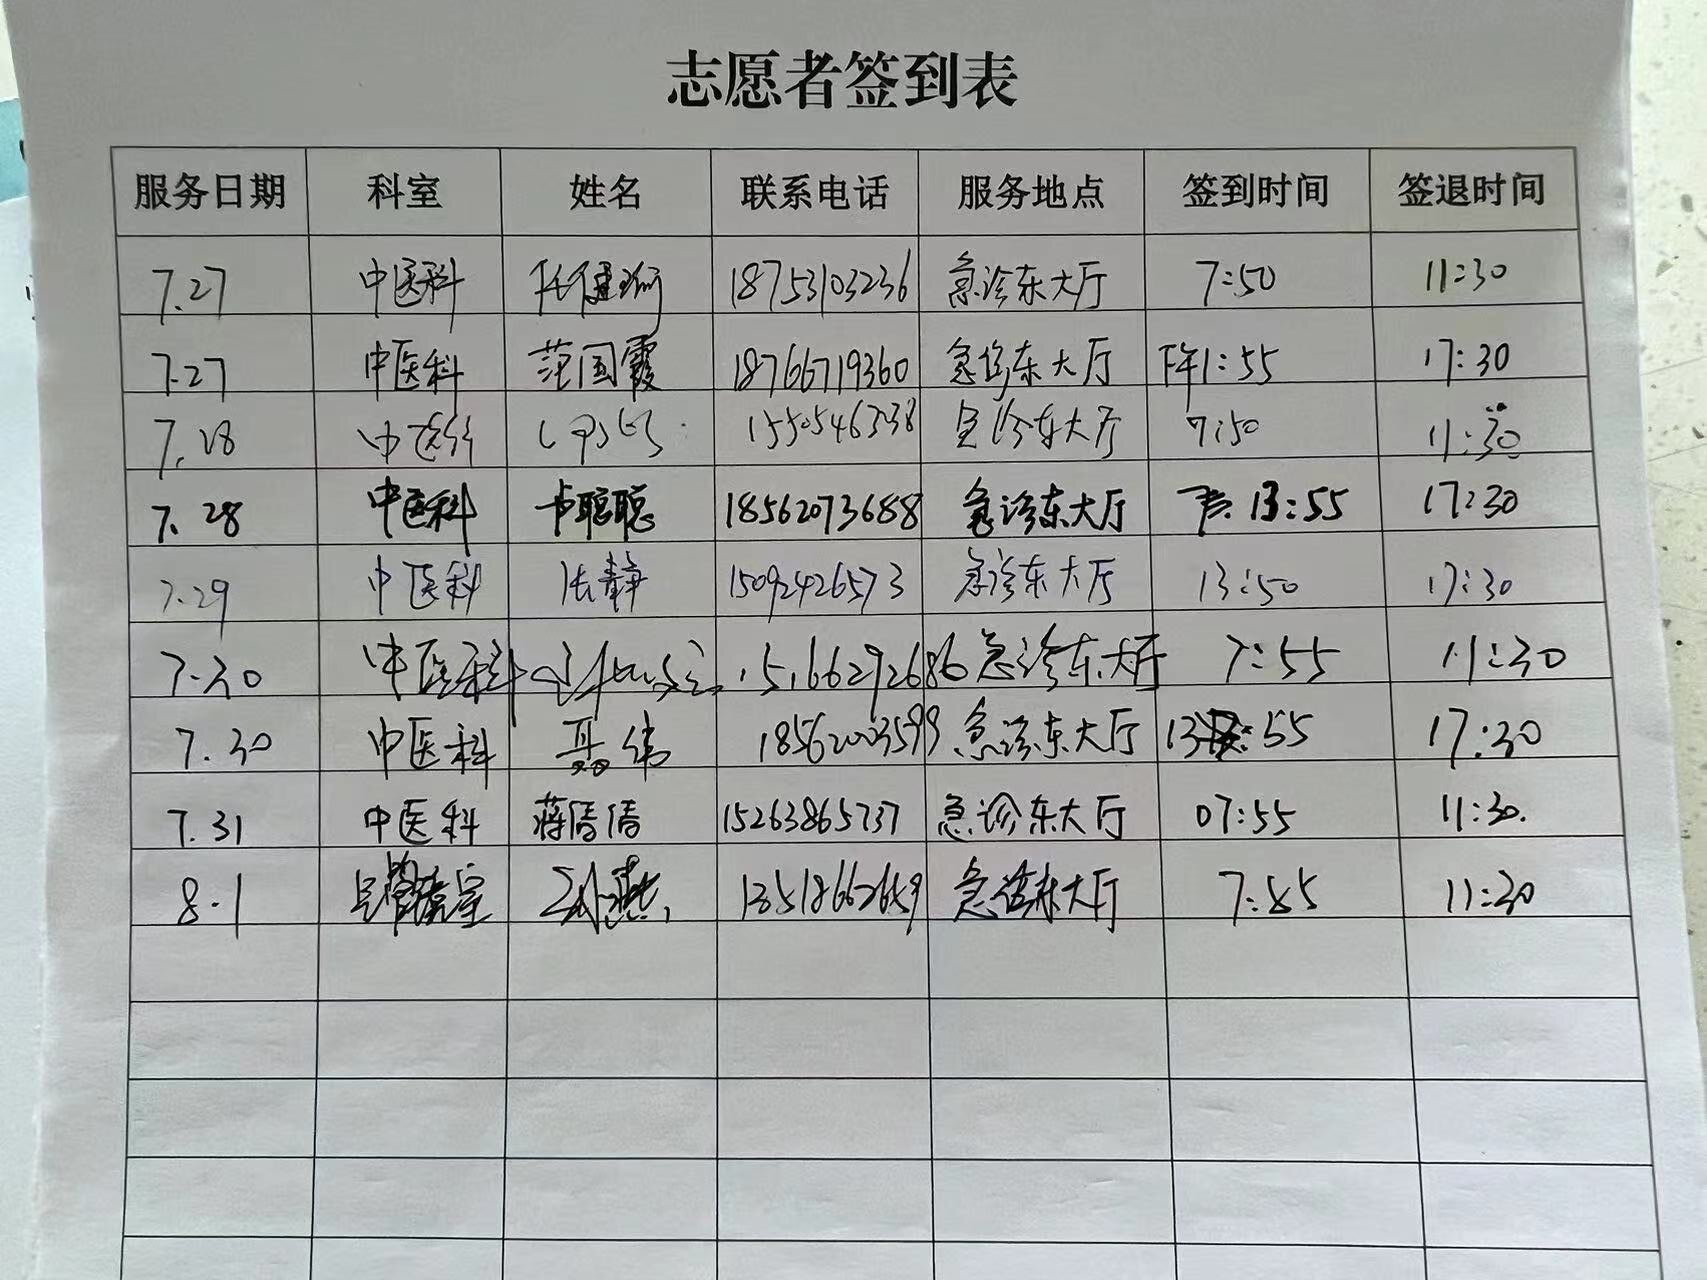 志愿者签到表
服务日期 科室 姓名 联系电话 服务地点 签到时间 签退时间
7.27 中医科 18753103236 急诊东大厅 7:50 11:30
7.27 中医科 范国霞 18766719360 急诊东大厅 下午1:55 17:30
7.28 中医科 急诊东大厅 7:50 11:30
7.28 中医科 卢聪聪 18562073688 急诊东大厅 13:55 17:30
7.29 中医科 张静 15092426573 急诊东大厅 13:50 17:30
7.30 中医科 15166292686 急诊东大厅 7:55 11:30
7.30 中医科 聂伟 18562003599 急诊东大厅 17:30
7.31 中医科 蒋倩倩 15263865737 急诊东大厅 07:55 11:30.
8.1 急诊东大厅 7:55 11:30